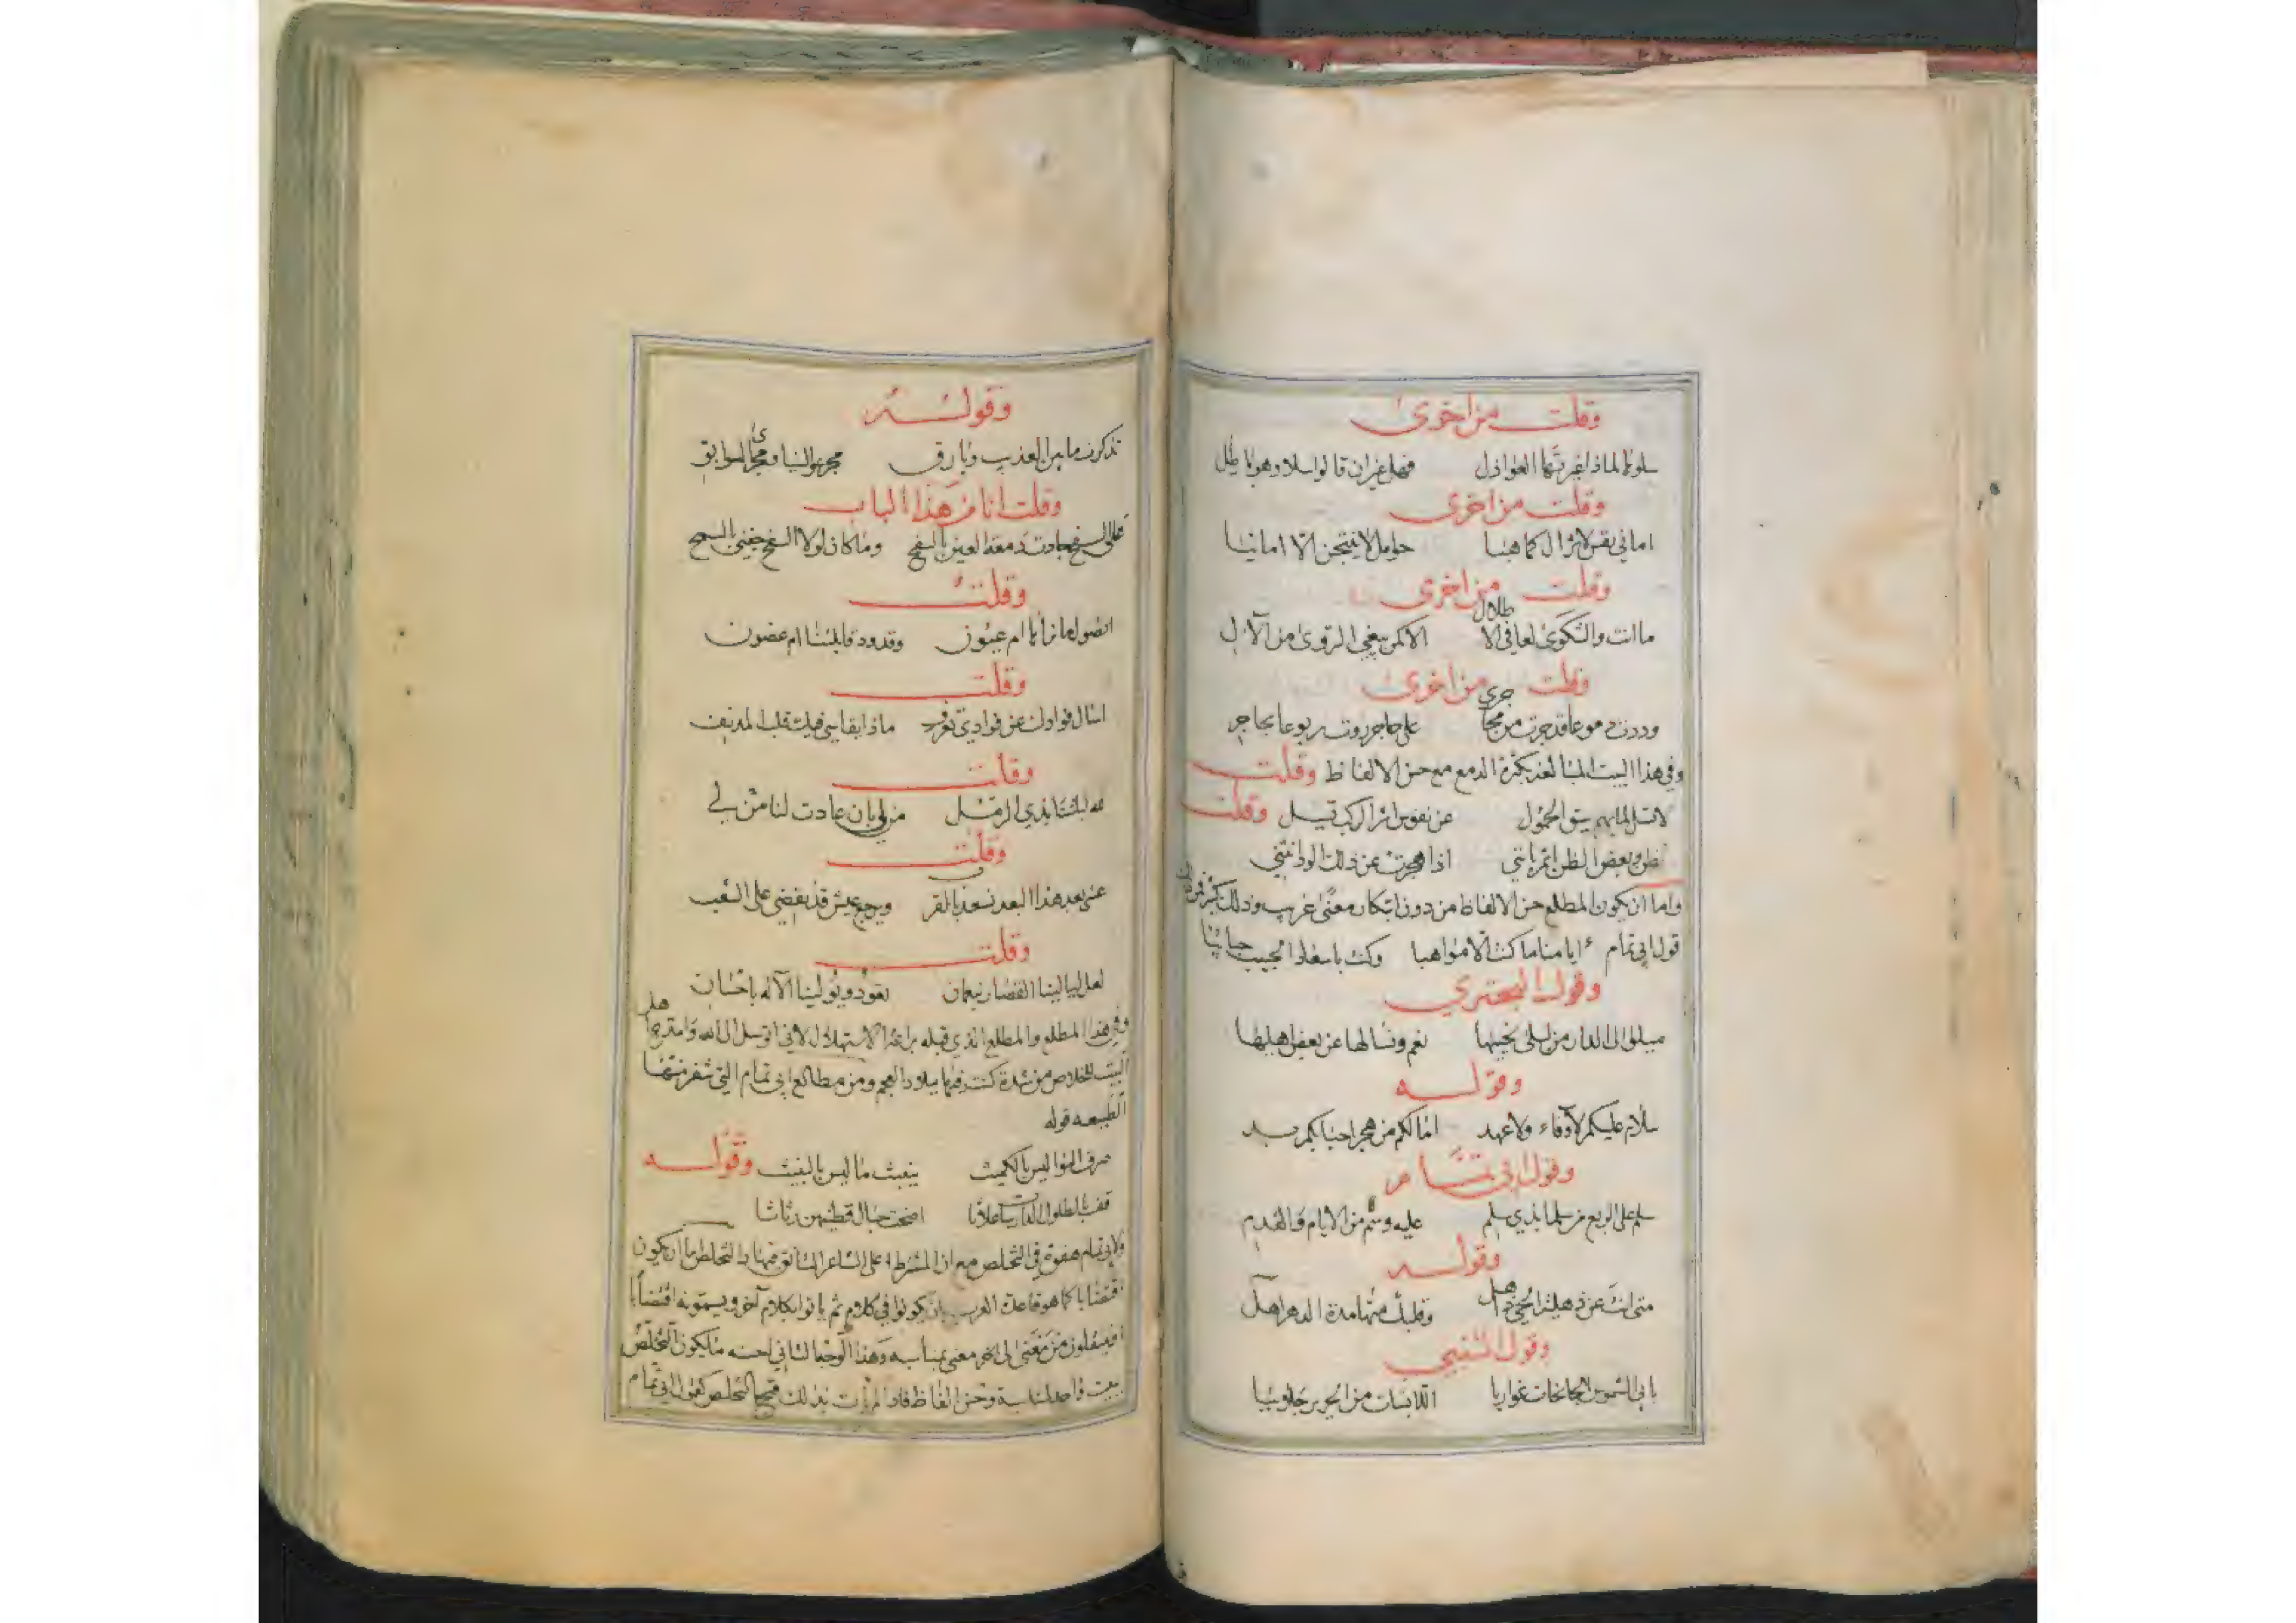 وقلت من اخرى
سلوها لماذا غيرتها العواذل فهل غير ان قالوا سلا وهو باطل
وقلت من اخرى
اماني نفس لا تزال كما هيا حوامل لا ينتجن الا امانيا
وقلت من اخرى
ما انت والشكوى لعافي الاطلال الا كمن يبغي الروى من الآل
وقلت من اخرى
وددت دموعا قد جرت من محاجري على حاجر روت ربوعا بحاجر
وفي هذا البيت المبالغة بكثرة الدمع مع حسن الالفاظ وقلت
لا تسل لما بهم سيق الحمول عن نفوس اثر الركب تسيل وقلت
تظن وبعض الظن اثم بانني اذا هجرت عن ذلك الود انثني
واما ان يكون المطلع حسن الالفاظ من دون ابتكار معنى غريب وذلك كثير فمن ذلك
قول ابي تمام ايامنا ما كنت الا مواهبا وكنت باسعاف الحبيب حبائبا
وقول البحتري
ميلوا الى الدار من ليلى نحييها نعم ونسالها عن بعض اهليها
وقوله
سلام عليكم لا وفاء ولا عهد اما لكم من هجر احبابكم بد
وقول ابي تمام
سلم على الربع من سلما بذي سلم عليه وسم من الايام والقدم
وقوله
متى انت عن ذهلية الحي ذاهل وقلبك منها مدة الدهر اهل
وقول المتنبي
بابي الشموس الجانحات غواربا اللابسات من الحرير جلاببا
وقوله
تذكرت ما بين العذيب وبارق مجر عوالينا ومجرى السوابق
وقلت انا من هذا الباب
على السفح جادت دمعة العين بالسفح وما كان لولا السفح جفني بالسمح
وقلت
انصول ما نرانا ام عيون وقدود قابلتنا ام غصون
وقلت
اسال فوادك عن فوادي تعرف ماذا يقاسي فيك قلب المدنف
وقلت
ليلتنا بذي الرمل من لي بان عادت لنا من لي
وقلت
عسى بعد هذا البعد نسعد بالقرب ويرجع عيش قد يقضى على الشعب
وقلت
لعل ليالينا القصار بنعمان تعود ويولينا الآله باحسان
وفي هذا المطلع والمطلع الذي قبله براعة الاستهلال لاني اتوسل الى الله وامتدح اهل
البيت للخلاص من شدة كنت فيها ببلاد العجم ومن مطالع ابي تمام التي تنفر منها
الطبيعه قوله
صرف النوا ليس بالمكيث ينبث ما ليس بالنبيث وقوله
قف بالطلول الدارسات علاثا اضحت حبال قطينهن رثاثا
ولابي تمام هفوة في التخلص مع ان المشترط على الشاعر التانق فيها والتخلص اما ان يكون
اقتضابا كما هو قاعدة العرب بان يكونوا في كلام ثم ياتوا بكلام آخر ويسمونه اقتضابا
او ينتقلون من معنى الى اخر معنى بمناسبه وهذا الوجه الثاني احسنه ما يكون التخلص
ببيت واحد لمناسبة وحسن الفاظ فاذا لم يات بذلك قبح التخلص كقول ابي تمام